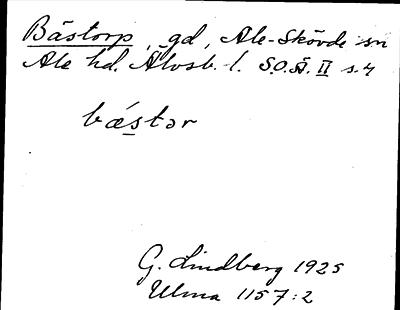 Bästorp, gd, Ale-Skövde sn
Ale hd. Älvsb. l. S.O.Ä. II s. 4
bǽstər
G. Lindberg 1925
Ulma 1157:2